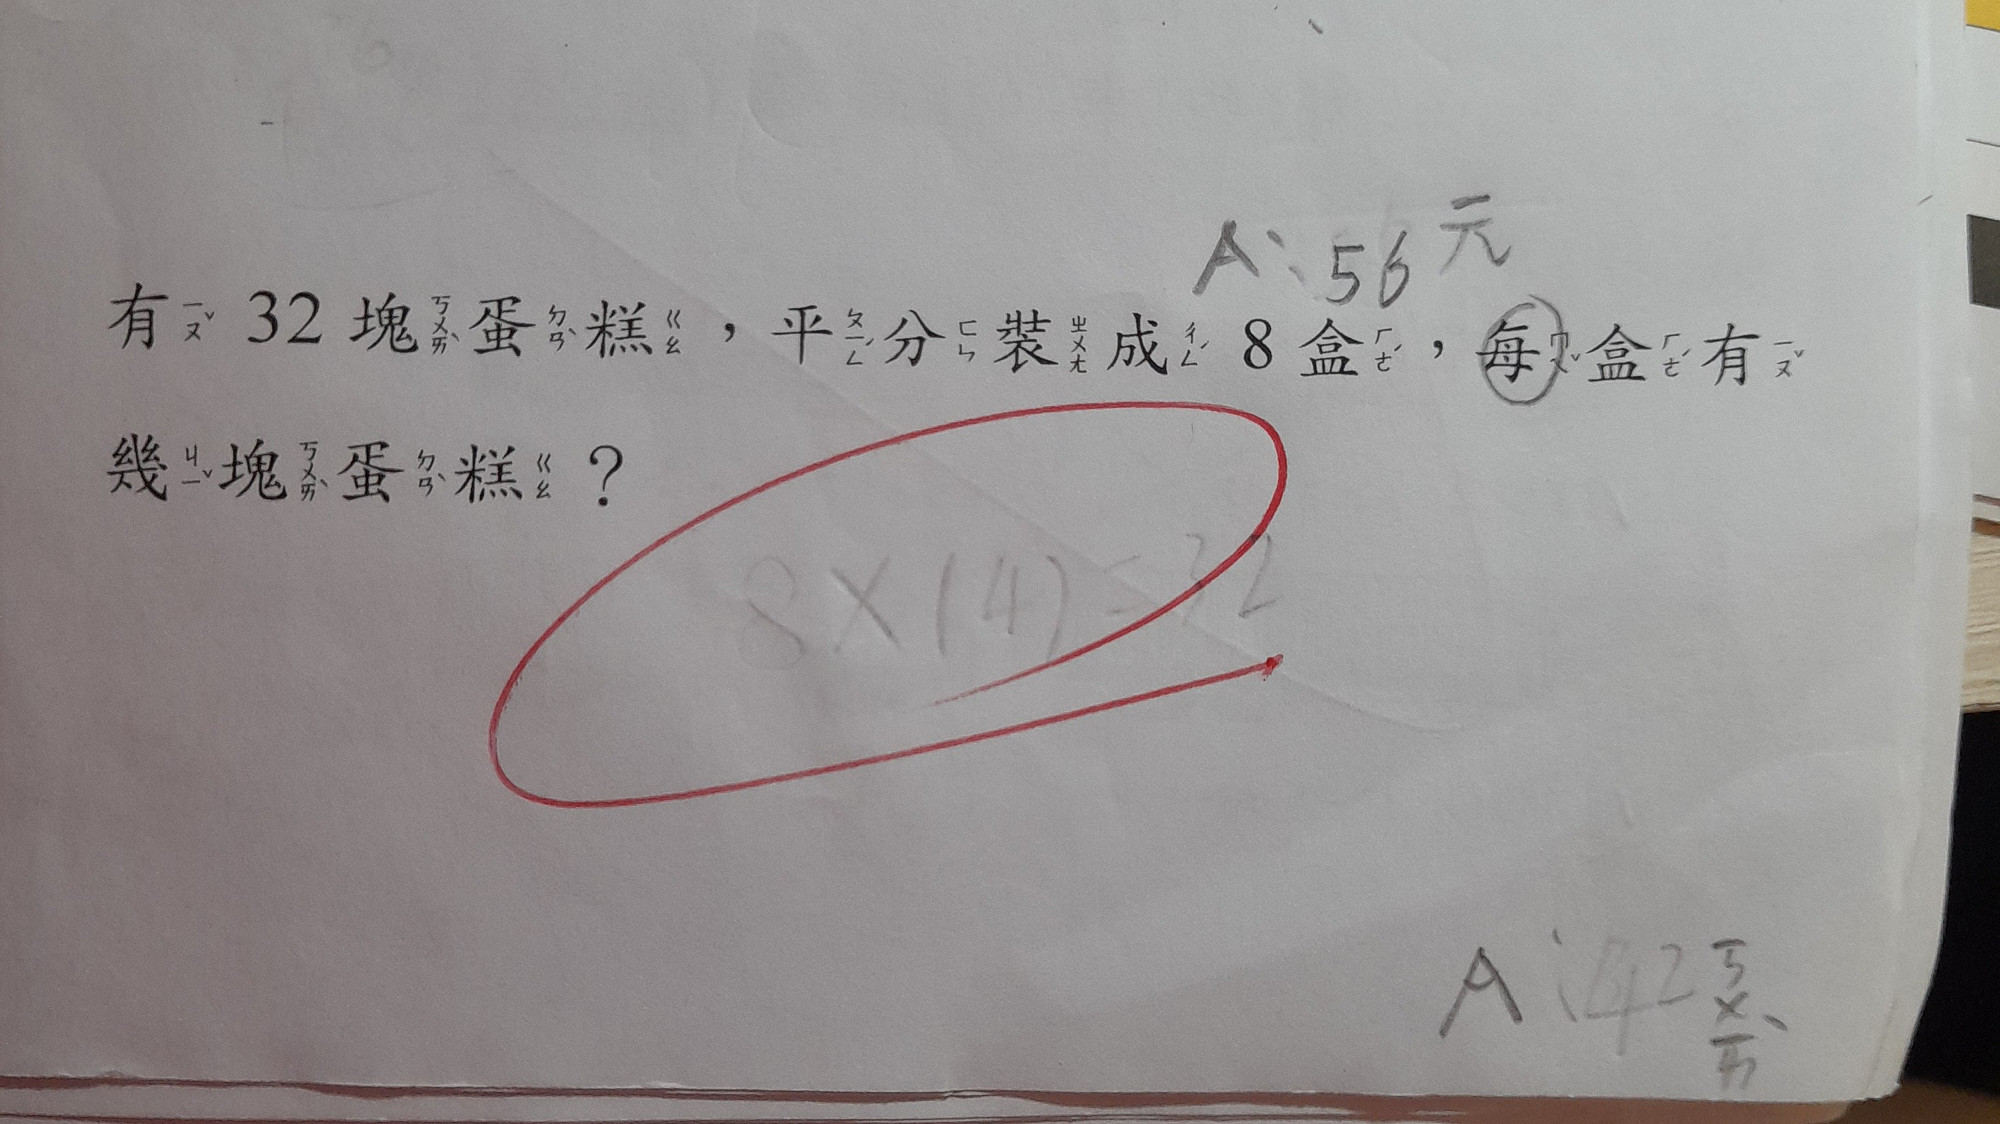 A:56元
有ㄧㄡˇ 32 塊ㄎㄨㄞˋ蛋ㄉㄢˋ糕ㄍㄠ，平ㄆㄧㄥˊ分ㄈㄣ裝ㄓㄨㄤ成ㄔㄥˊ 8 盒ㄏㄜˊ，每ㄇㄟˇ盒ㄏㄜˊ有ㄧㄡˇ
幾ㄐㄧˇ塊ㄎㄨㄞˋ蛋ㄉㄢˋ糕ㄍㄠ？
8×(4)=32
A:42ㄎㄨㄞˋ